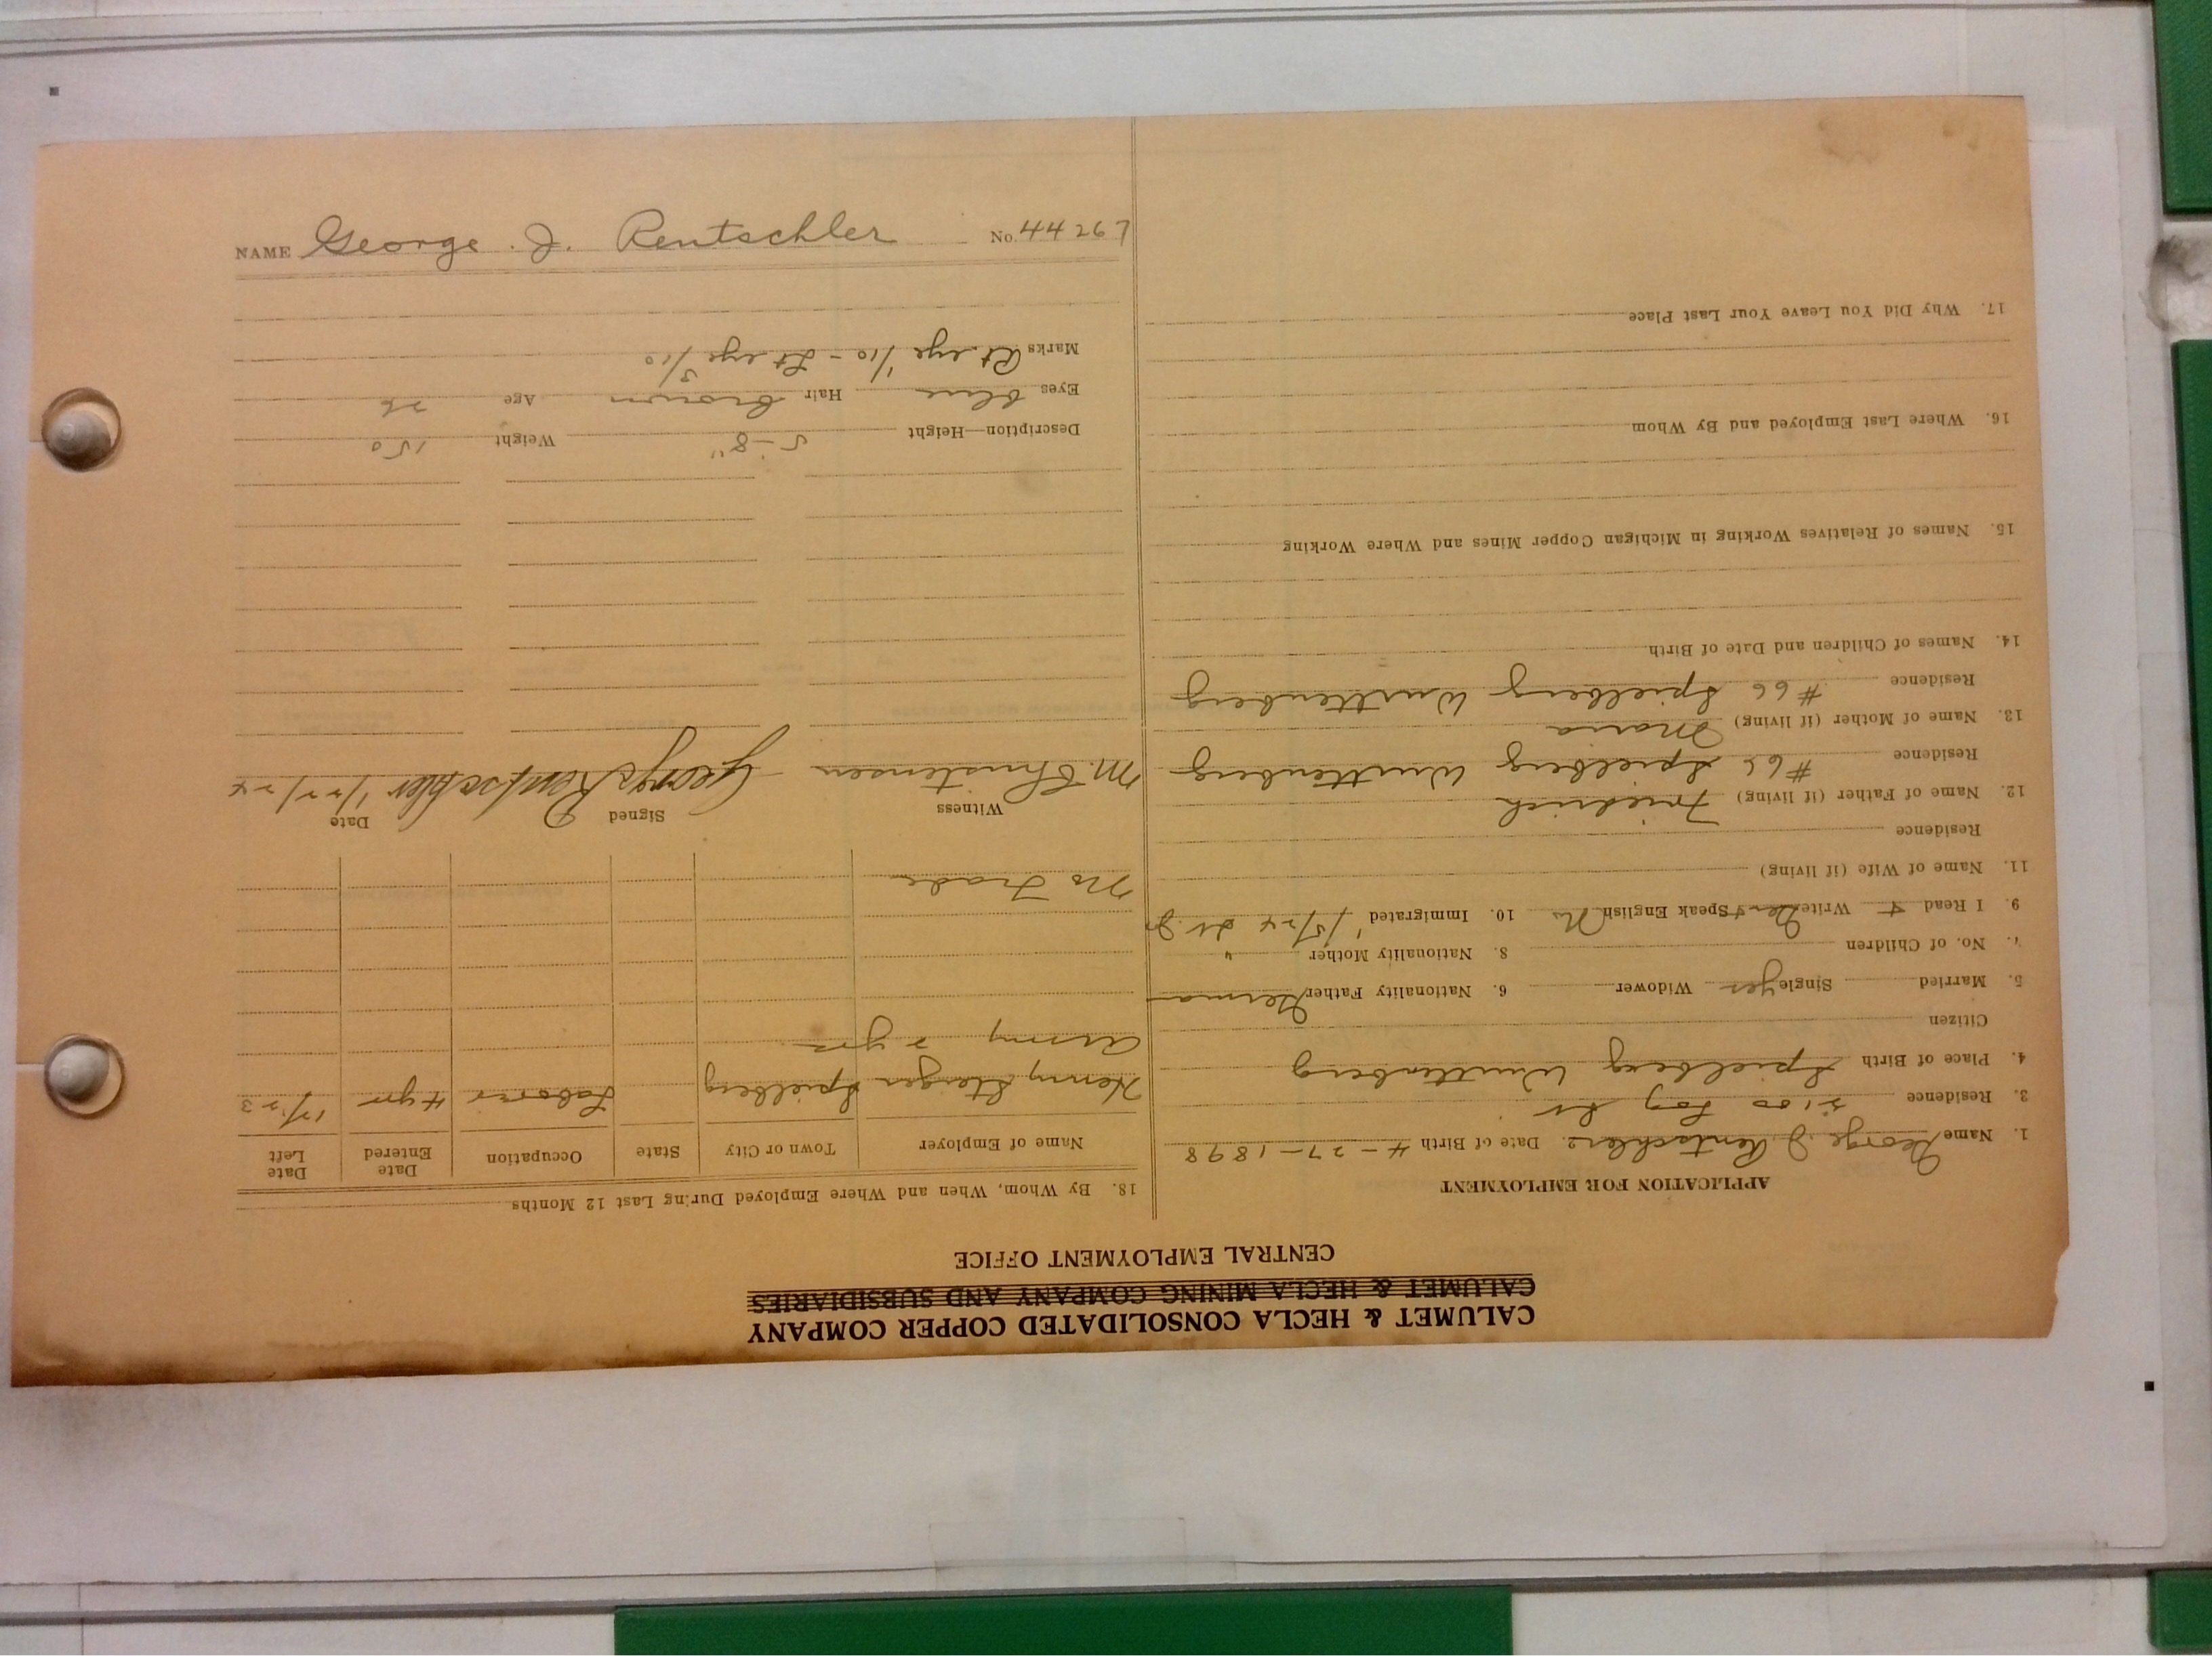 CALUMET & HECLA CONSOLIDATED COPPER COMPANY
CALUMET & HECLA MINING COMPANY AND SUBSIDIARIES
CENTRAL EMPLOYMENT OFFICE
APPLICATION FOR EMPLOYMENT
1. Name George J. Rentschler 2. Date of Birth 4-27-1898
3. Residence 2100 Log St
4. Place of Birth Spielberg Wurttenberg
Citizen
5. Married Single yes Widower 6. Nationality Father German
7. No. of Children 8. Nationality Mother "
9. I Read + Write Ger + Speak English No 10. Immigrated 1/5/24
11. Name of Wife (if living)
Residence
12. Name of Father (if living) Friedrich
Residence #66 Spielberg Wurttenberg
13. Name of Mother (if living) Maria
Residence #66 Spielberg Wurttenberg
14. Names of Children and Date of Birth
15. Names of Relatives Working in Michigan Copper Mines and Where Working
16. Where Last Employed and By Whom
17. Why Did You Leave Your Last Place
18. By Whom, When and Where Employed During Last 12 Months
Name of Employer Town or City State Occupation Date Entered Date Left
Henry Stenger Spielberg Laborer 4 yrs 12/23
Army 2 yrs
No Trade
Witness Signed Date
M. Christensen George Rentschler 1/22/24
Description—Height 5-8" Weight 150
Eyes blue Hair brown Age 26
Marks Rt. eye 1/10 - Lt eye 3/10
NAME George J. Rentschler No. 44267